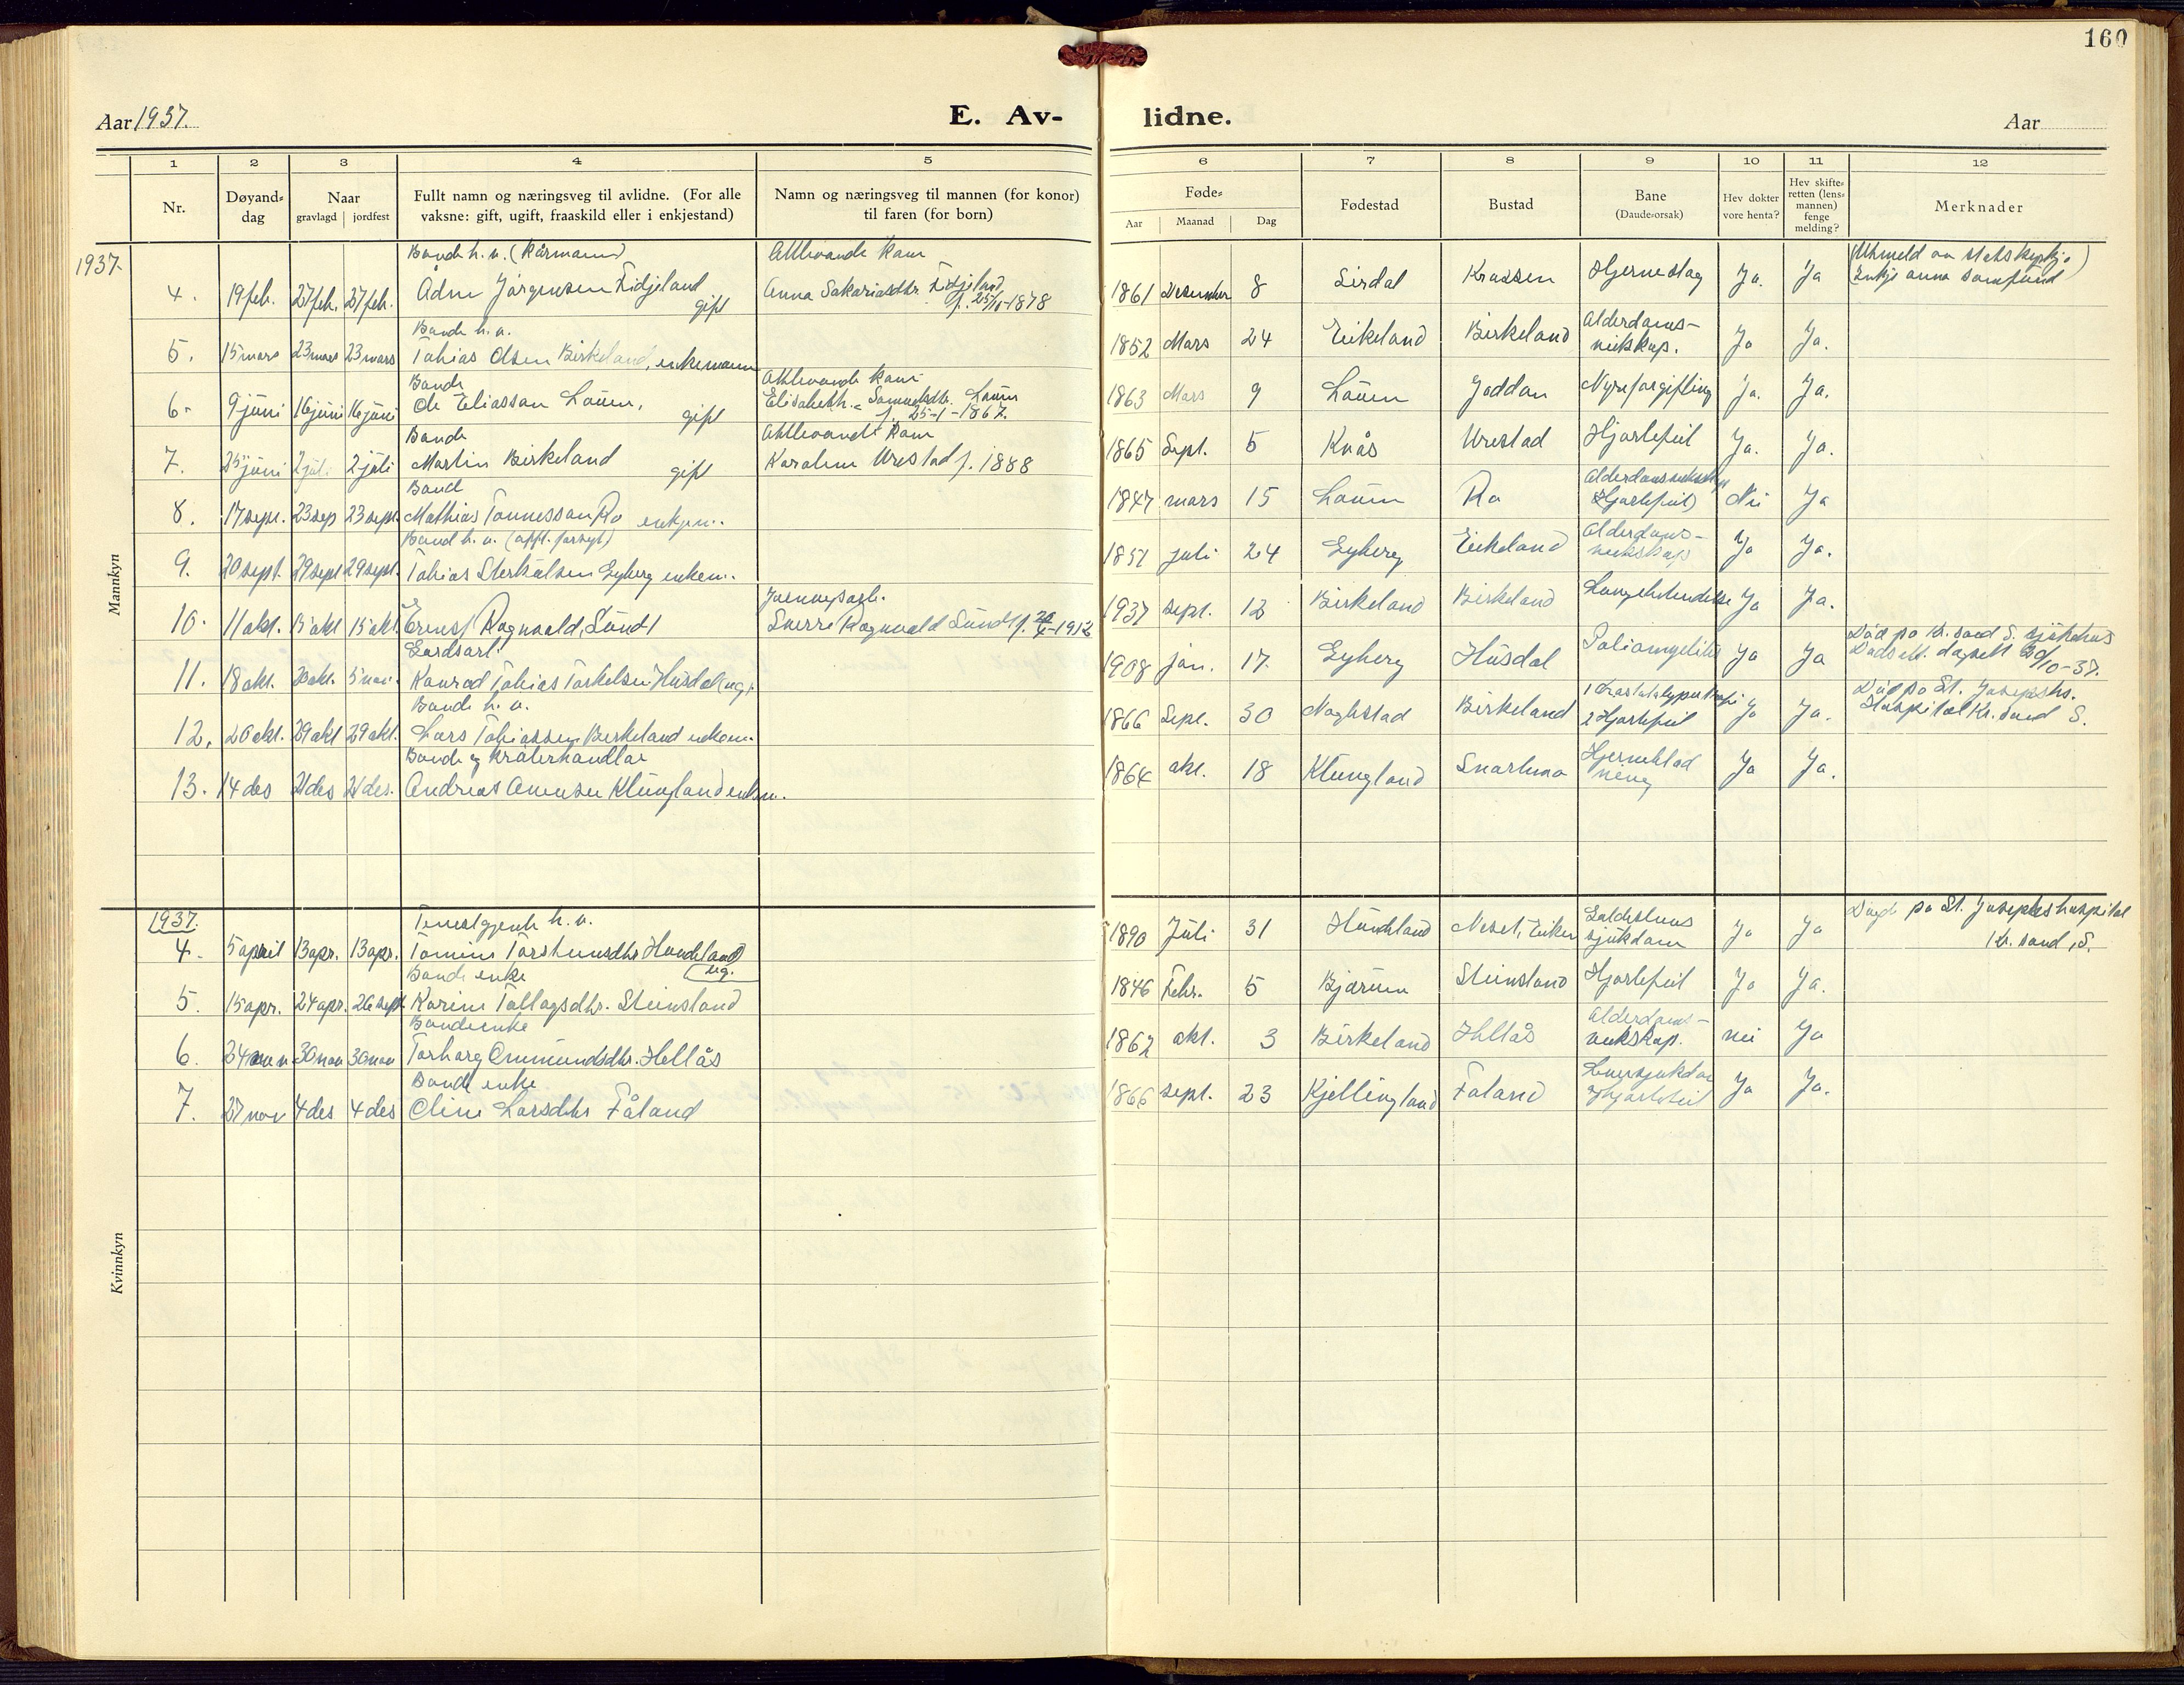 160
Aar 1937.
E. Av-
lidne.
Aar
1 2 3 4 5
6 7 8 9 10 11 12
Nr.
Døyand=
dag
Naar
gravlagd | jordfest
Fullt namn og næringsveg til avlidne. (For alle
vaksne: gift, ugift, fraaskild eller i enkjestand)
Namn og næringsveg til mannen (for konor)
til faren (for born)
Føde=
Aar Maanad Dag
Fødestad
Bustad
Bane
(Daude=orsak)
Hev dokter
vore henta?
Hev skifte=
retten (lens=
mannen)
fenge
melding?
Merknader
Mannkyn
1937.
Bonde h. v. (kårmann) Attlevande kone (Utmeld av statskyrkja)
4. 19 feb. 27 feb. 27 feb. Ådne Jørgensen Fidjeland gift Anna Sakariasdtr. Fidjeland 1861 Desember 8 Sirdal Krossen Hjerneslag Ja. Ja Inkje anna samfund
f. 25/10-1878
Bonde h. v. Alderdoms-
5. 15 mars 23 mars 23 mars Tobias Olsen Birkeland, enkemann 1852 Mars 24 Eikeland Birkeland veikskap. Ja Ja.
Bonde Attlevande kone
6. 9 juni 16 juni 16 juni Ole Eliasson Lauen, gift Elisabeth Samuelsdtr. Lauen 1863 Mars 9 Lauen Joddan Nyreforgifting Ja. Ja.
f. 25-1-1867.
Bonde Attlevande kone
7. 25 juni 2 juli 2 juli Martin Birkeland gift Karoline Urestad f. 1888 1865 Sept. 5 Kvås Urestad Hjartefeil Ja. Ja.
Bonde Alderdomsveikskap
8. 17 sept. 23 sep 23 sept. Mathias Tønnesson Ro enkjem. 1847 mars 15 Lauen Ro (Hjartefeil) Nei Ja
Bonde h. v. (off. forsyt) Alderdoms-
9. 20 sept. 29 sept 29 sept. Tobias Sterkalsen Eyberg enkem. 1851 juli 24 Eyberg Eikeland veikskap Ja Ja.
Jarnvegsarb.
10. 11 okt. 15 okt 15 okt. Ernest Ragnvald Sundt Sverre Ragnvald Sundt f. 1912 1937 sept. 12 Birkeland Birkeland Lungebetendelse Ja Ja.
Gardsarb. Død på Kr. sand S. sjukehus
11. 18 okt. 30 okt. 5 nov. Konrad Tobias Torkelsen Husdal (ug). 1908 jan. 17. Eyberg Husdal Poliomyelitis Ja Ja Dødsatt. dagsett 20/10-37.
Bonde h. v. Død på St. Josephs.
12. 26 okt. 29 okt 29 okt. Lars Tobiassen Birkeland enkem. 1866 Sept. 30 Noghstad Birkeland 2 Hjartefeil Ja Ja. Hospital Kr. sand S.
Bonde og krøterhandlar
13. 14 des 21 des 21 des. Andreas Anensen Klungland enkem. 1864 okt. 18 Klungland Snartemo Hjerneblødning Ja Ja.
Kvinnkyn
1937.
Tenestgjente h. v. Død på St. Josephs hospital
4. 5 april 13 apr. 13 apr. Tomine Torsteinsdtr Hundeland ug. 1890 Juli 31 Hundeland Neset, Eiken sjukdom Ja Ja Kr. sand, S.
Bonde enke
5. 15 apr. 24 apr. 26 sept Karine Tollagsdtr. Steinsland 1846 Febr. 5 Bjørum Steinsland Hjartefeil Ja Ja.
Bondeenke Alderdoms-
6. 24 nov 30 nov 30 nov Torborg Ommundsdtr. Hellås 1862 okt. 3 Birkeland Hellås veikskap. nei Ja
Bonde enke
7. 27 nov 4 des 4 des Oline Larsdtr Fåland 1866 sept. 23 Kjellingland Faland Leversjukdom Hjartefeil Ja Ja.